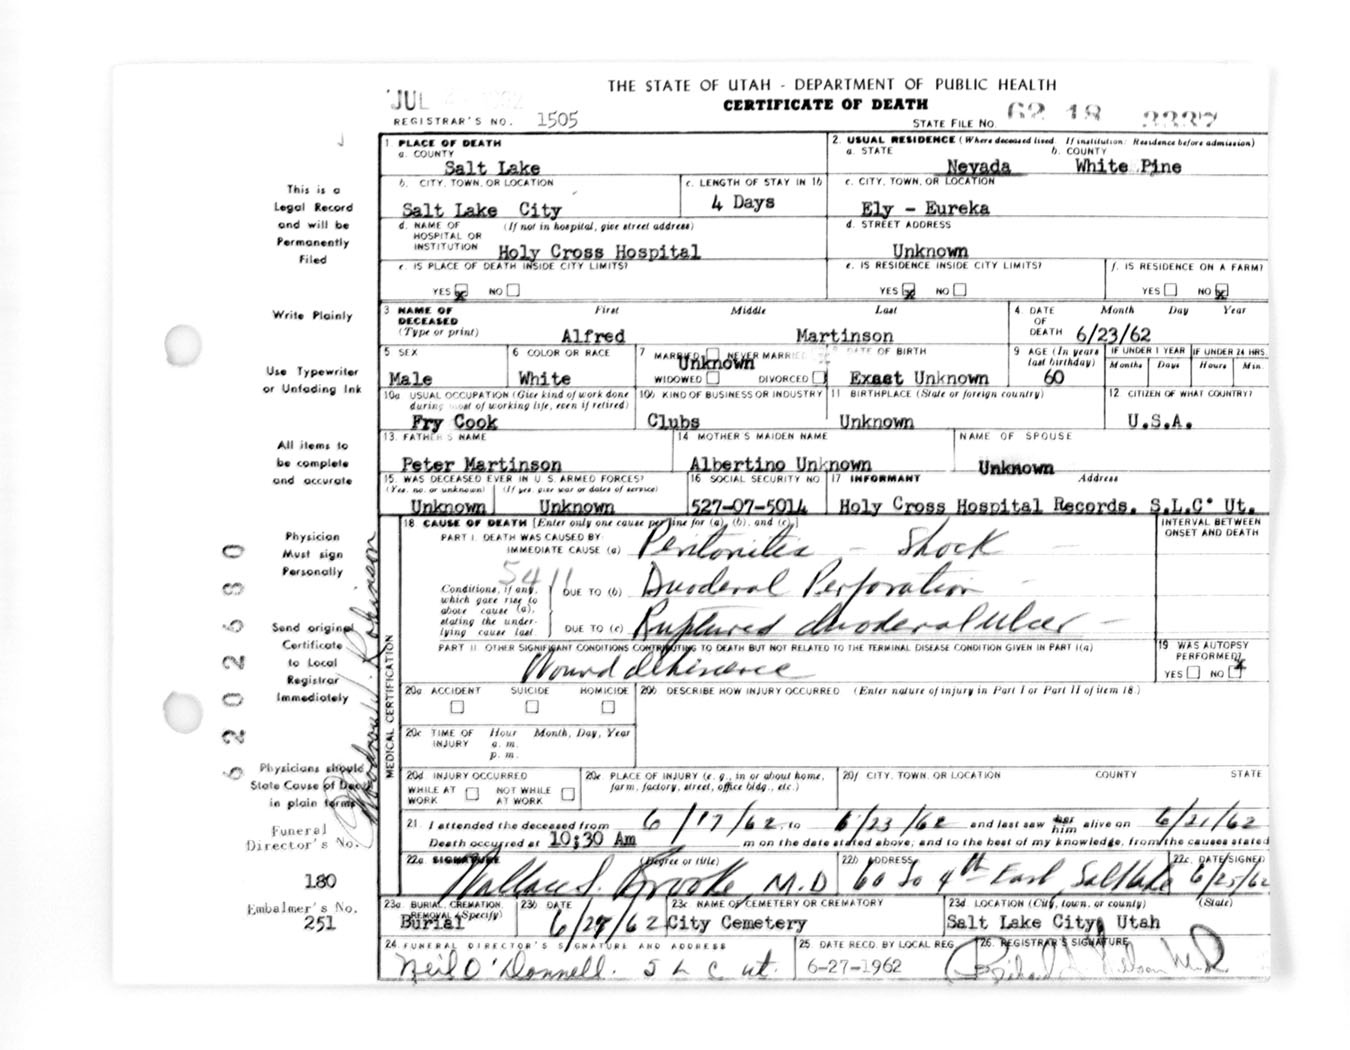 THE STATE OF UTAH - DEPARTMENT OF PUBLIC HEALTH
JUL
CERTIFICATE OF DEATH
REGISTRAR'S NO. 1505
STATE FILE NO. 62 18 3337
This is a
Legal Record
and will be
Permanently
Filed
Write Plainly
Use Typewriter
or Unfading Ink
All items to
be complete
and accurate
Physician
Must sign
Personally
Send original
Certificate
to Local
Registrar
Immediately
Physicians should
State Cause of Death
in plain terms
Funeral
Director's No.
180
Embalmer's No.
251
6202680
Robinson
1 PLACE OF DEATH
a. COUNTY
Salt Lake
2. USUAL RESIDENCE (Where deceased lived. If institution: Residence before admission)
a. STATE b. COUNTY
Nevada White Pine
b. CITY, TOWN, OR LOCATION
Salt Lake City
c. LENGTH OF STAY IN 1b
4 Days
c. CITY, TOWN, OR LOCATION
Ely - Eureka
d. NAME OF HOSPITAL OR INSTITUTION (If not in hospital, give street address)
Holy Cross Hospital
d. STREET ADDRESS
Unknown
e. IS PLACE OF DEATH INSIDE CITY LIMITS?
YES x NO
e. IS RESIDENCE INSIDE CITY LIMITS?
YES x NO
f. IS RESIDENCE ON A FARM?
YES NO x
3 NAME OF DECEASED (Type or print)
First Middle Last
Alfred Martinson
4. DATE OF DEATH Month Day Year
6/23/62
5 SEX
Male
6 COLOR OR RACE
White
7 MARRIED NEVER MARRIED
Unknown
WIDOWED DIVORCED
8 DATE OF BIRTH
Exact Unknown
9 AGE (In years last birthday)
60
IF UNDER 1 YEAR IF UNDER 24 HRS.
Months Days Hours Min.
10a USUAL OCCUPATION (Give kind of work done during most of working life, even if retired)
Fry Cook
10b KIND OF BUSINESS OR INDUSTRY
Clubs
11 BIRTHPLACE (State or foreign country)
Unknown
12 CITIZEN OF WHAT COUNTRY?
U.S.A.
13. FATHER'S NAME
Peter Martinson
14 MOTHER'S MAIDEN NAME
Albertino Unknown
NAME OF SPOUSE
Unknown
15. WAS DECEASED EVER IN U.S. ARMED FORCES?
(Yes, no, or unknown) (If yes, give war or dates of service)
Unknown Unknown
16 SOCIAL SECURITY NO
527-07-5014
17 INFORMANT Address
Holy Cross Hospital Records. S.L.C. Ut.
MEDICAL CERTIFICATION
18 CAUSE OF DEATH [Enter only one cause per line for (a), (b), and (c).]
INTERVAL BETWEEN ONSET AND DEATH
PART I. DEATH WAS CAUSED BY:
IMMEDIATE CAUSE (a) Peritonitis - Shock
5411
Conditions, if any, which gave rise to above cause (a), stating the underlying cause last
DUE TO (b) Duodenal Perforation
DUE TO (c) Ruptured duodenal ulcer
PART II OTHER SIGNIFICANT CONDITIONS CONTRIBUTING TO DEATH BUT NOT RELATED TO THE TERMINAL DISEASE CONDITION GIVEN IN PART I(a)
Wound dehiscence
19 WAS AUTOPSY PERFORMED?
YES NO x
20a ACCIDENT SUICIDE HOMICIDE
20b DESCRIBE HOW INJURY OCCURRED (Enter nature of injury in Part I or Part II of item 18.)
20c TIME OF INJURY Hour Month, Day, Year
a. m.
p. m.
20d INJURY OCCURRED
WHILE AT WORK NOT WHILE AT WORK
20e. PLACE OF INJURY (e. g., in or about home, farm, factory, street, office bldg., etc.)
20f CITY, TOWN, OR LOCATION COUNTY STATE
21. I attended the deceased from 6/17/62 to 6/23/62 and last saw her him alive on 6/21/62
Death occurred at 10:30 Am m on the date stated above; and to the best of my knowledge, from the causes stated
22a SIGNATURE (Degree or title)
Wallace S. Brooke, M.D
22b ADDRESS
60 So 4th East, Salt Lake
22c. DATE SIGNED
6/25/62
23a BURIAL, CREMATION, REMOVAL (Specify)
Burial
23b DATE
6/27/62
23c NAME OF CEMETERY OR CREMATORY
City Cemetery
23d LOCATION (City, town, or county) (State)
Salt Lake City, Utah
24 FUNERAL DIRECTOR'S SIGNATURE AND ADDRESS
Neil O'Donnell. S L C ut.
25 DATE RECD. BY LOCAL REG.
6-27-1962
26. REGISTRAR'S SIGNATURE